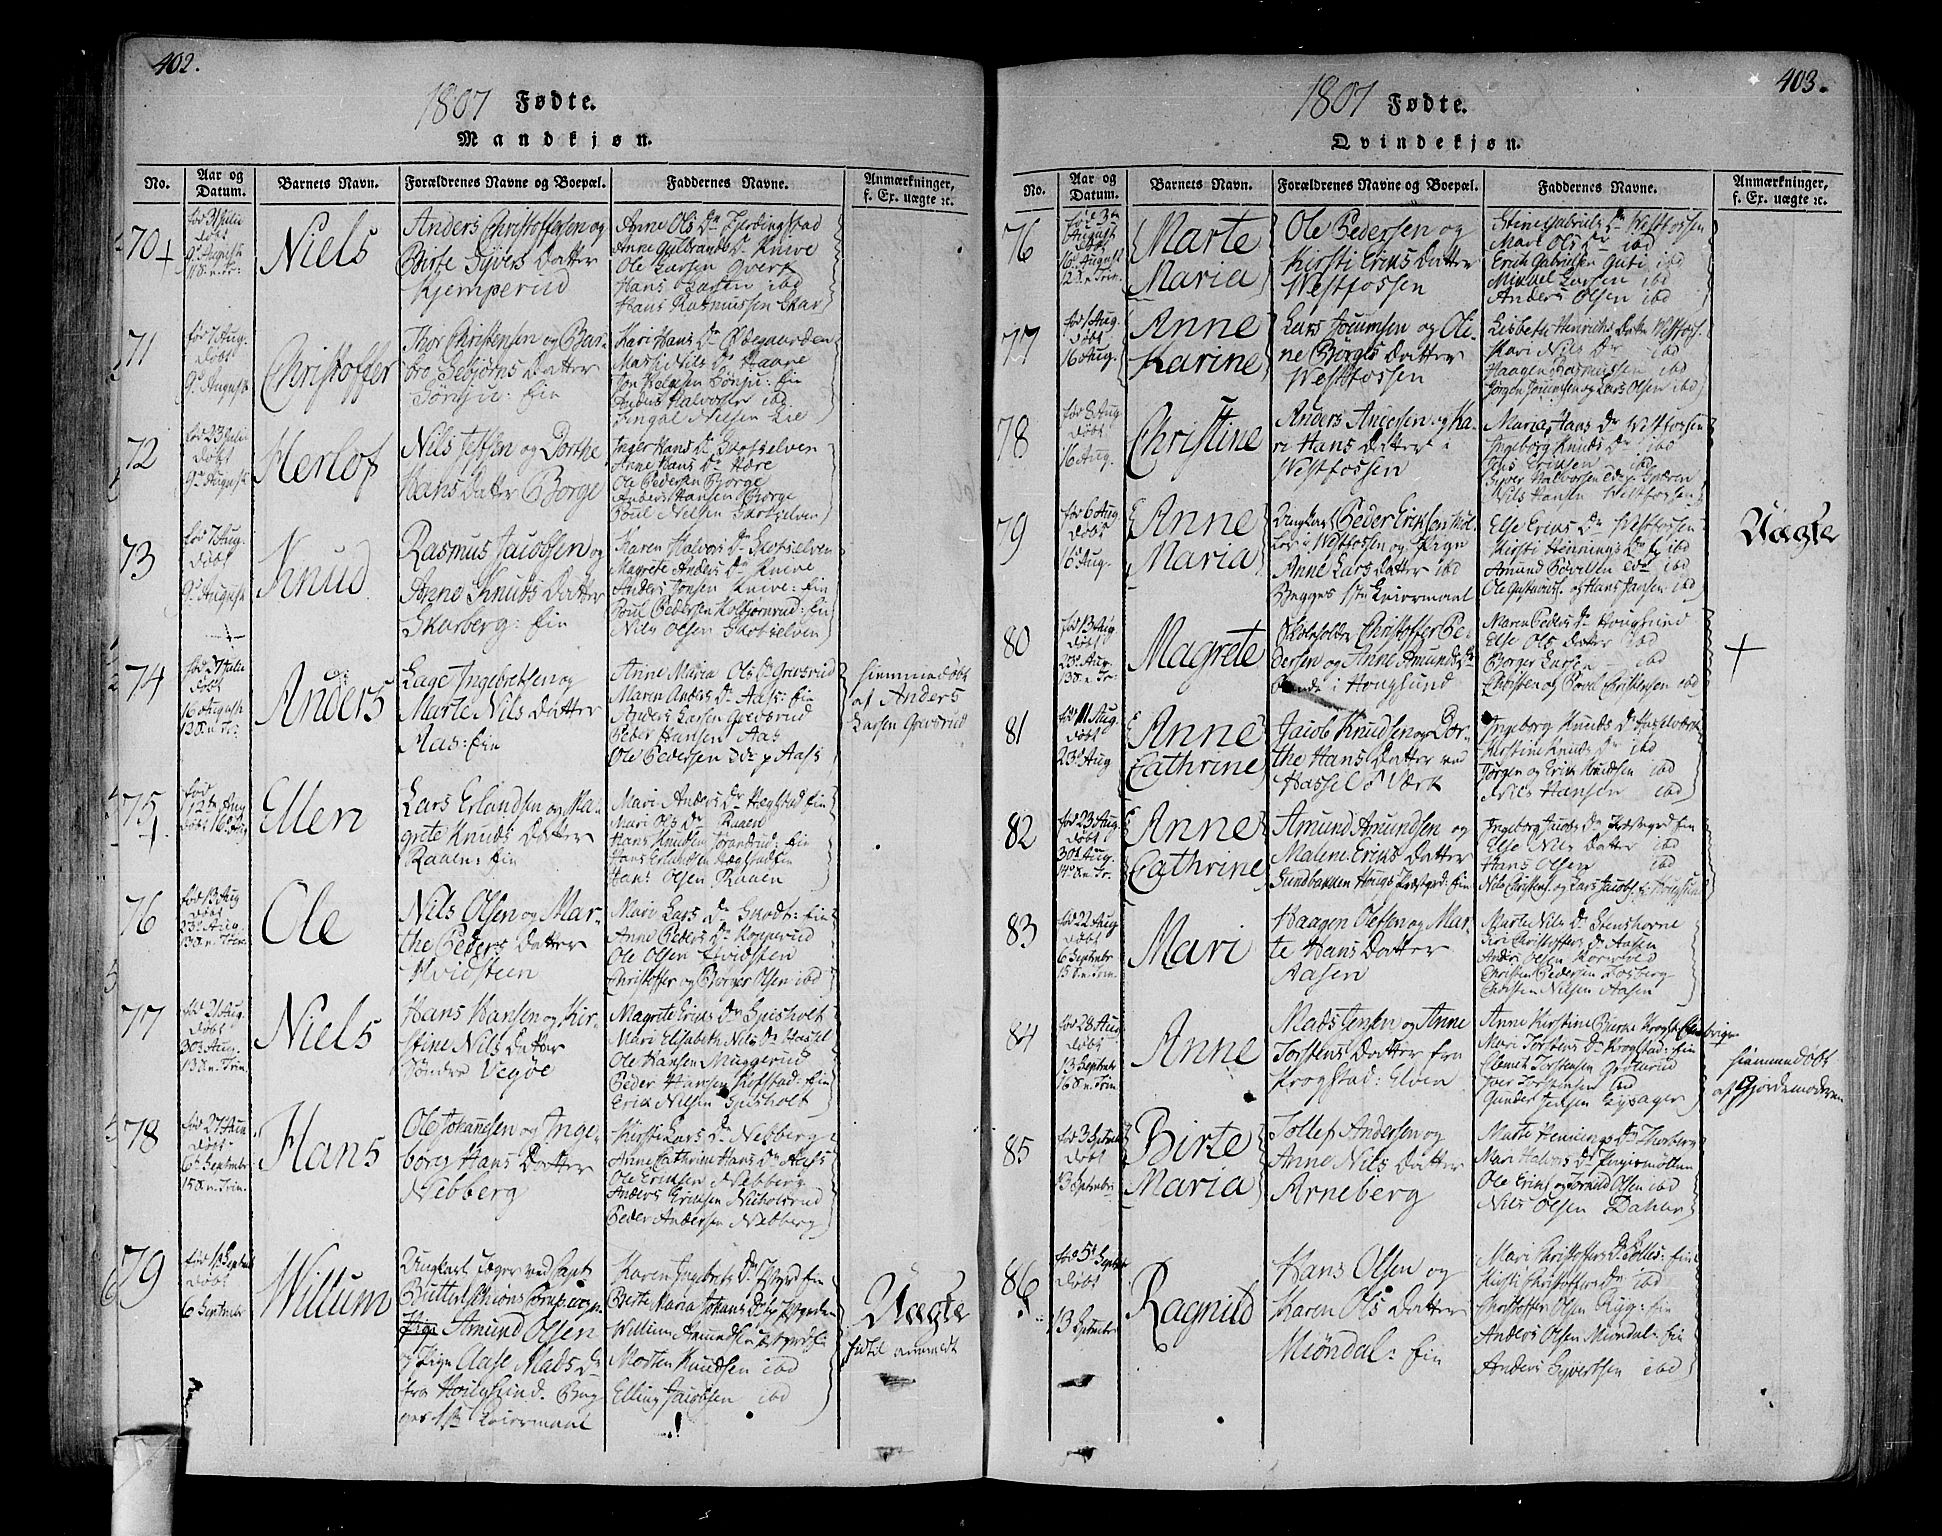 402.
1807 Fødte.
Mandkjøn.
No.
Aar og Datum.
Barnets Navn.
Forældrenes Navne og Boepæl.
Faddernes Navne.
Anmærkninger, f. Ex. uægte ꝛc.
70
død 9de August
Niels
Anders Christoffersen og
Birte Syvers Datter
Kjemperud
Anne Ols Dr
Anne Gulbrands Dr Knive
Ole Larsen
Hans Larsen ibd
Hans Rasmussen Skar
71
fød 7 Aug.
Døbt
9de August
Christoffer
Thor Christensen og Bar-
bro Datter
Eie
Kari Hans Dr Ødegaarden
Nils Dr Haare
Anders Halvorsen ibd
Engal Nielsen Lie
72
fød 23 Julii
Døbt
9de August
Herlof
Nils Jessen og Dorthe
Hans Datter Borge
Inger Hans Dr Skotselven
Anne Hans Dr Hære
Ole Pedersen Borge
Anders Hansen Borge
Poul Nielsen Skotselven
73
fød 7 Aug.
Døbt
9de August
Knud
Rasmus Jacobsen og
Anne Knuds Datter
Skarberg: Eie
Karen Halvors Dr Skotselven
Magrete Anders Dr Knive
Anders Jonsen Knive: Eie
Poul Pedersen Kolbjornrud: Eie
Nils Olsen Skotselven
74
fød 27 Julii
Døbt
16 August
12 S. n. Tr:
Anders
Lage Ingebretsen og
Marte Nils Datter
Aas: Eie
Anne Maria Ols Dr Grevsrud
Maren Anders Dr Aas: Eie
Anders Larsen Grevsrud
Peder Hansen Aas
Ole Pedersen Aas
hiemmedøbt
af Anders
Larsen Grevsrud
75
fød
12te Aug
Døbt 16 Aug
Ellen
Lars Erlandsen og Ma-
grete Knuds Datter
Raaen: Eie
Mari Anders Dr Hægstad Eie
Mari Ols Dr Raaen
Hans Knudsen
Hans Erlandsen Hægstad Eie
Hans Olsen Raaen
76
fød 13 Aug
Døbt
23de Aug.
13 S. n. Trin.
Ole
Nils Olsen og Mar-
the Peders Datter
Hvidsteen
Mari Lars Dr Eie
Anne Peders Dr Kopperud
Ole Olsen Hvidsten
Christoffer og Borger Olsen ibd
77
fød 21 Aug.
Døbt
30de Aug.
Niels
Hans Hansen og Kir-
stine Nils Datter
Søndre Vegøe
Magrete Eriks Dr Spisholt
Mari Elisabeth Nils Dr Hassel
Ole Hansen Muggerud
Peder Hansen Kofstad: Eie
Erik Nilsen Spisholt
78
fød 27 Aug
Døbt
6te September
15 S. n. Trin.
Hans
Ole Johansen og Inge-
borg Hans Datter
Nebberg
Kirsti Lars Dr Nebberg
Anne Cathrine Hans Dr Aas
Ole Eriksen Nebberg
Anders Eriksen
Peder Andersen Nebberg
79
fød 1 Septembr
Døbt
6 September
Willum
Ungkarl Jæger ved Capt
Comp:
Amund Olsen
og Pige Aase Mads Dr
fra Houglund. Beg-
ges 1ste Leiermaal
Karen Ingebrets Dr
Berte Maria Johans Dr
Willum Amundsen
Morten Knudsen ibd
Elling Jacobsen ibd
Uægte
anmeldt
403.
1807 Fødte.
Qvindekjøn.
No.
Aar og Datum.
Barnets Navn.
Forældrenes Navne og Boepæl.
Faddernes Navne.
Anmærkninger, f. Ex. uægte ꝛc.
76
fød 3de
August
Døbt
16de August
12 S. n. Trin.
Marte
Maria
Ole Pedersen og
Kirsti Eriks Datter
Westfossen
Stine Gabriels Dr Westfossen
Mari Ols Dr ibd
Erich Gabrielsen ibd
Mikkel Larsen ibd
Anders Olsen ibd
77
fød 1 Aug.
Døbt
16 Aug.
Anne
Karine
Lars Joumsen og Oli-
ne Børges Datter
Westfossen
Lisbeth Henrichs Datter Westfos.
Kari Nils Dr ibd
Haagen Rasmussen ibd
Jørgen Joumsen og Lars Olsen ibd
78
fød 8 Aug
Døbt
16 Aug.
Christine
Anders Andersen og Ka-
ri Hans Datter i
Westfossen
Maria Hans Dr Westfossen
Ingeborg Knuds Dr ibd
Jens Eriksen ibd
Syver Halvorsen
Nils Hansen Westfossen
79
fød 6 Aug
Døbt
16 Aug.
Anne
Maria
Ungkarl Peder Eriksen
i Westfossen og Pige
Anne Lars Datter ibd
Begges 1ste Leiermaal
Else Eriks Dr Westfossen
Kirsti Hennings Dr ibd
Amund ibd
Ole Gustavs. og Hans Hansen ibd
Uægte
80
fød 13 Aug
Døbt
23de Aug.
13 S. n. Tr:
Magrete
Skoleholder Christoffer Pe-
dersen og Anne Amunds Dr
i Houglund
Maren Peders Dr Houglund
Else Ols Datter ibd
Borger Larsen ibd
Christen og Poul Christensen ibd
81
fød 11 Aug.
Døbt
23de Aug
Anne
Cathrine
Jacob Knudsen og Dor-
the Hans Datter ved
Hassel Værk
Ingeborg Knuds Dr Hasselværk
Kirstine Knuds Dr ibd
Jørgen og Erik Knudsen ibd
Nils Hansen ibd
82
fød 23 Aug.
Døbt
30de Aug.
14 S. n. Tr.
Anne
Cathrine
Amund Amundsen og
Malene Eriks Datter
Sundbakken Hougs Præstgrd: Eie
Ingeborg Jacobs Dr Præstgrd Eie
Else Nils Datter ibd
Hans Olsen ibd
Nils Christens. og Lars Jacobs. Houglund
83
fød 22 Aug
Døbt
6 Septembr
15 S. n. Trin.
Mari
Haagen Olesen og Mar-
te Hans Datter
Aasen
Marte Nils Dr Stenshorne
Siri Christoffers Dr Aasen
Anders Olsen
Christen Pedersen Fosberg
Christen Nilsen Aasen
84
fød 28 Aug
Døbt
13 Septembr
16 S. n. Trin.
Anne
Mads Jensen og Anne
Torstens Datter fra
Krogstad: Elven
Anne Kirstine Bierke Krogst.
Mari Torstens Dr Krogstad: Eie
Clemet Torstensen Grøtterud
Iver Torstensen ibd
Gunder Jensen Gysager
hiemmedøbt
af Gjordemoderen
85
fød 3 Septembr
Døbt
13 Septembr
Birte
Maria
Tollef Andersen og
Anne Nils Datter
Arneberg
Marte Hennings Dr Thorberg
Mari Halvors Dr Pugismøllen
Ole Eriks. og Trond Olsen ibd
Nils Olsen Dahler
86
fød 5te Septbr
Døbt
13 September
Ragnild
Hans Olsen og
Karen Ols Datter
Miøndal: Eie
Mari Christoffers Dr Eie
Kirsti Christoffers Dr ibd
Christoffer Olsen Ryg: Eie
Anders Olsen Miøndal: Eie
Anders Syvertsen ibd